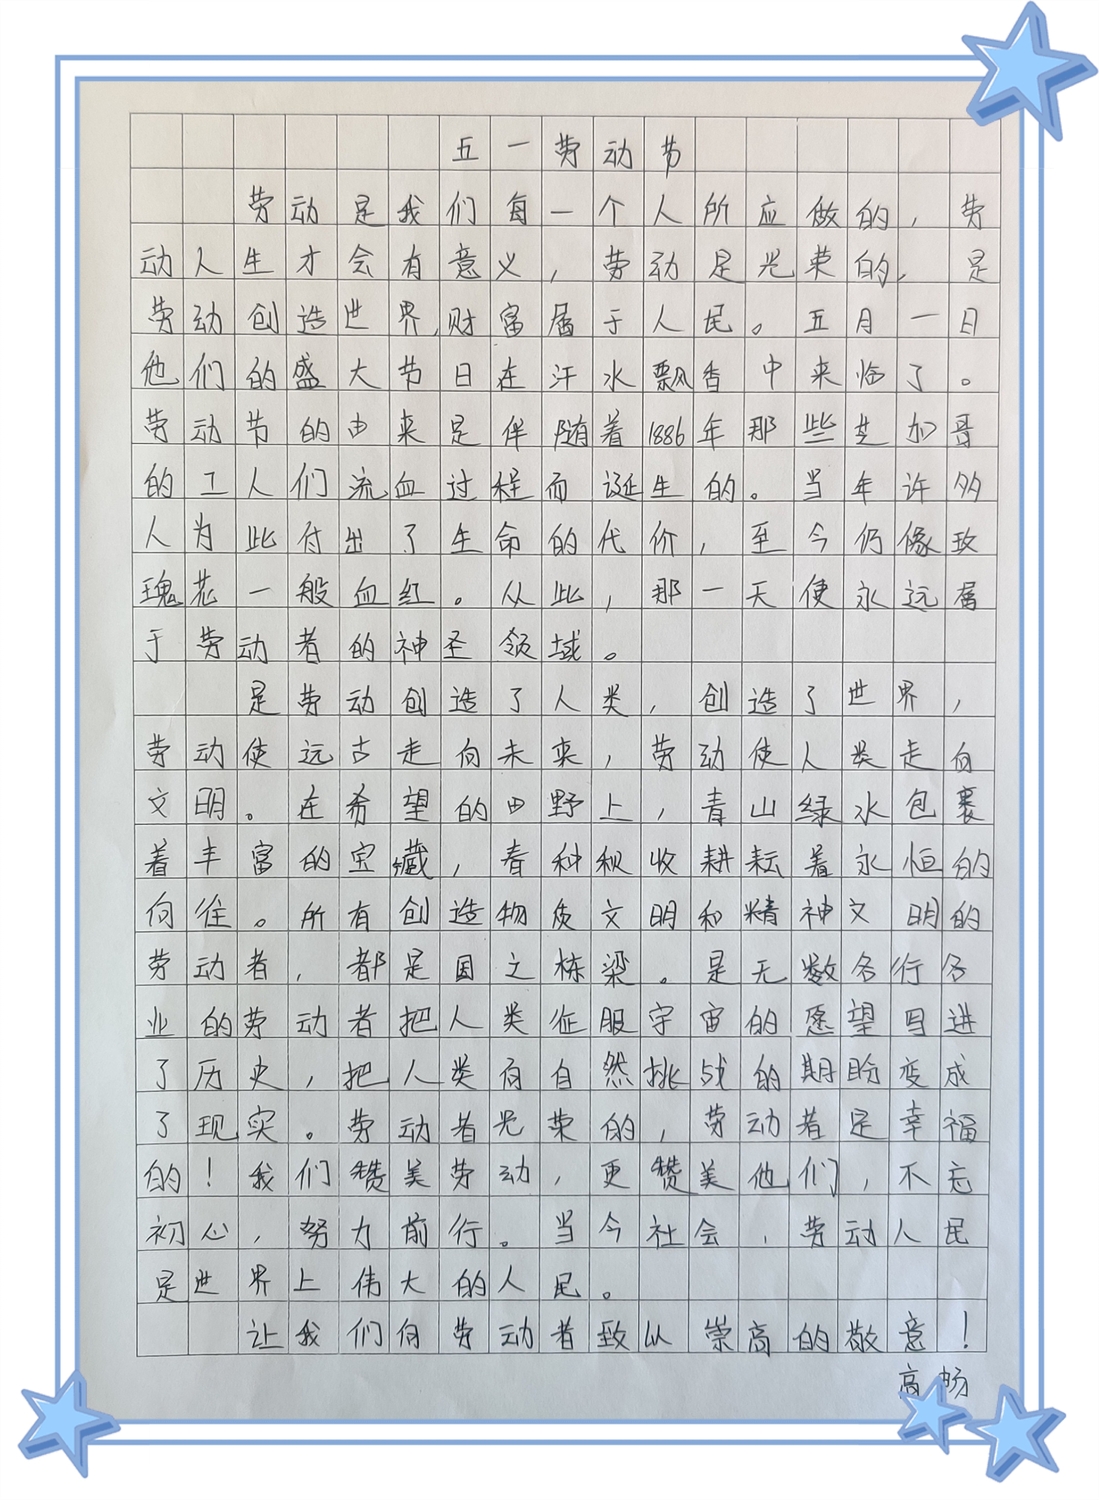 五一劳动节
劳动是我们每一个人所应做的，劳
动人生才会有意义，劳动是光荣的，是
劳动创造世界，财富属于人民。五月一日
他们的盛大节日在汗水飘香中来临了。
劳动节的由来是伴随着1886年那些芝加哥
的工人们流血过程而诞生的。当年许多
人为此付出了生命的代价，至今仍像玫
瑰花一般血红。从此，那一天使永远属
于劳动者的神圣领域。
是劳动创造了人类，创造了世界，
劳动使远古走向未来，劳动使人类走向
文明。在希望的田野上，青山绿水包裹
着丰富的宝藏，春种秋收耕耘着永恒的
向往。所有创造物质文明和精神文明的
劳动者，都是国之栋梁。是无数各行各
业的劳动者把人类征服宇宙的愿望写进
了历史，把人类向自然挑战的期盼变成
了现实。劳动者光荣的，劳动者是幸福
的！我们赞美劳动，更赞美他们，不忘
初心，努力前行。当今社会，劳动人民
是世界上伟大的人民。
让我们向劳动者致以崇高的敬意！
高畅